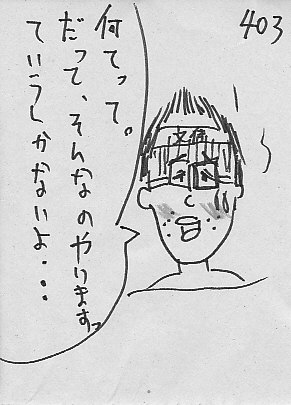 403
何てって。
だって、そんなのやりますっ
ていうしかないよ・・・